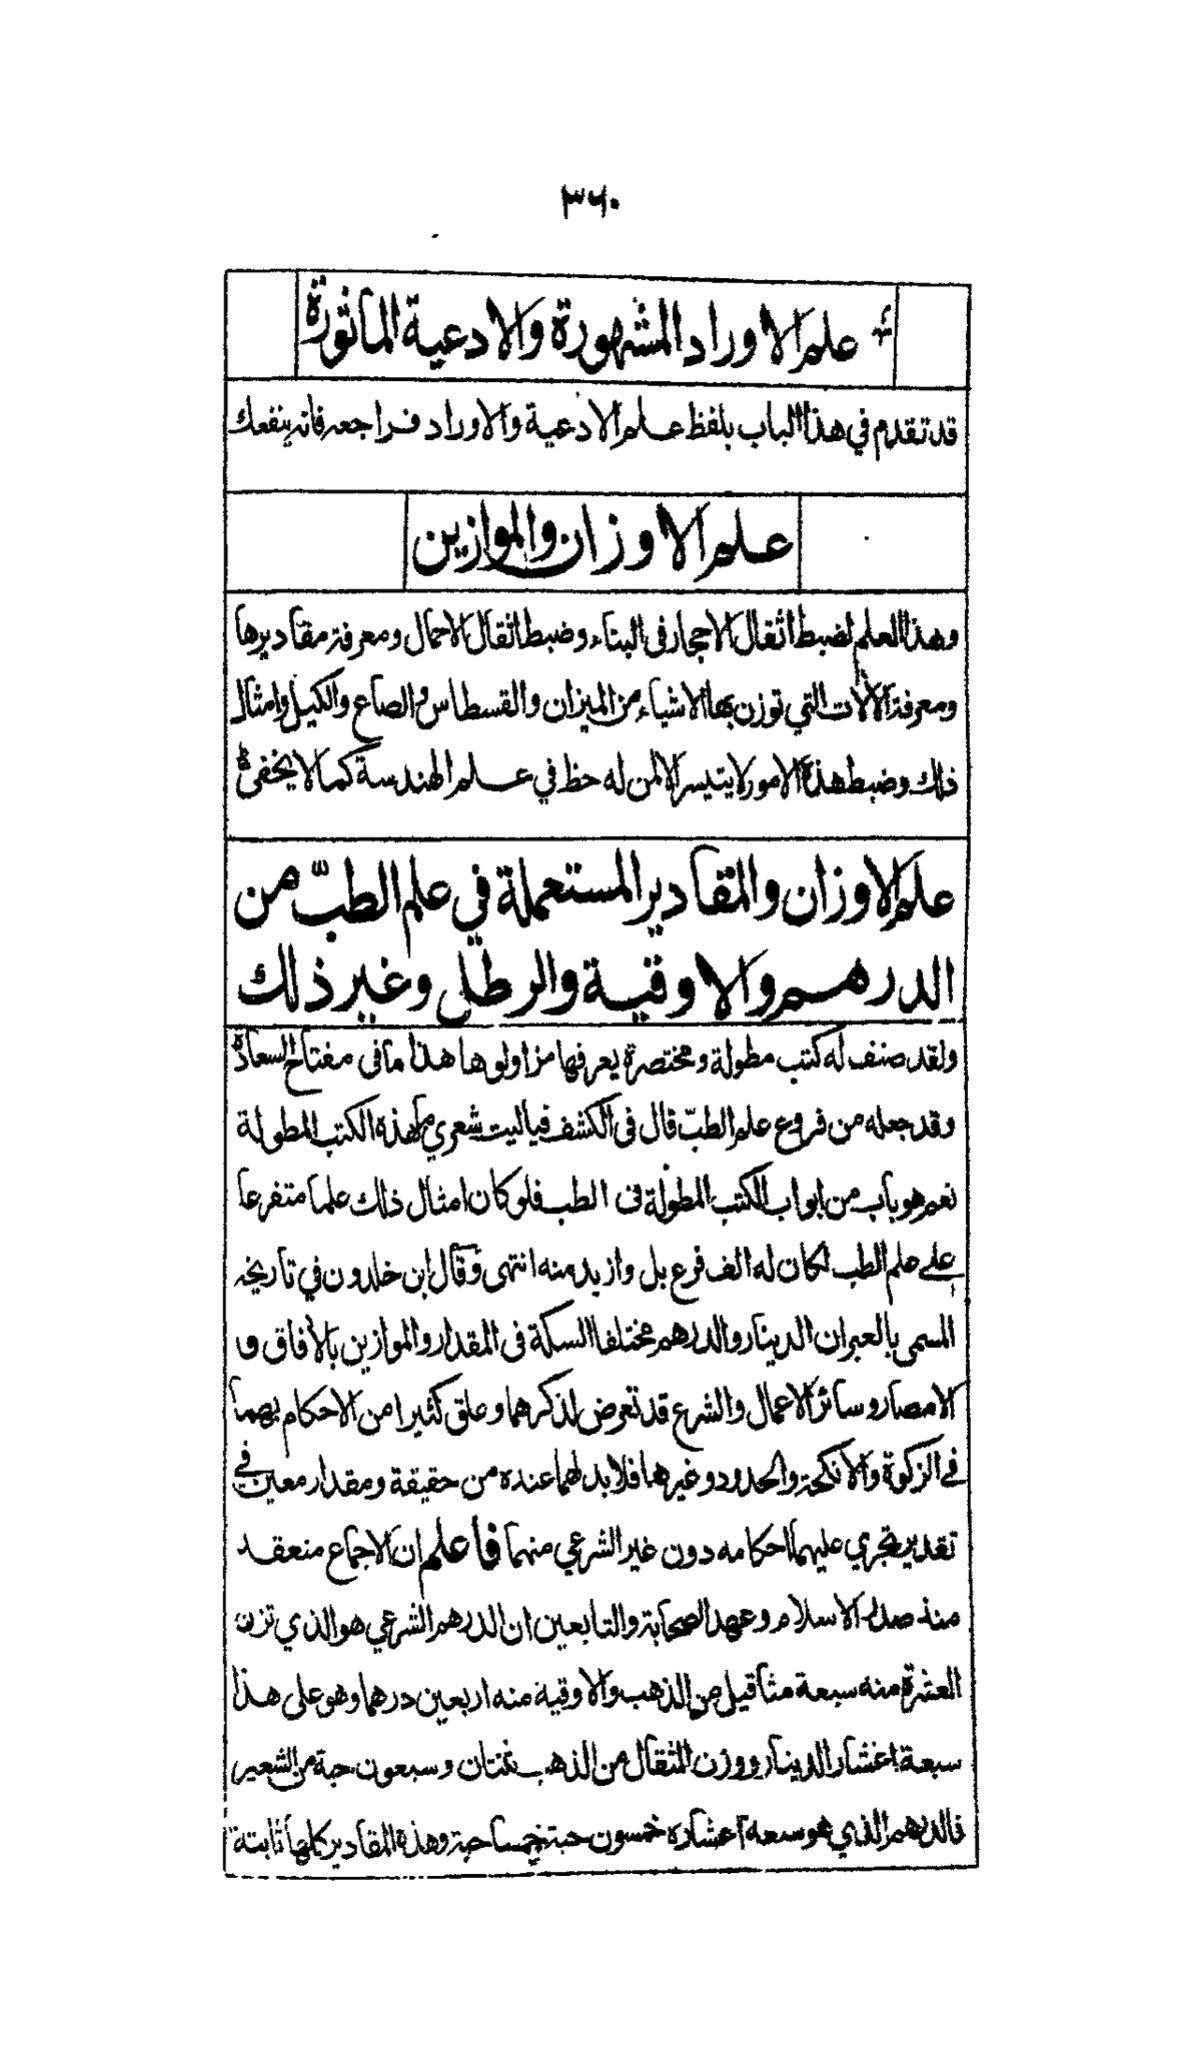 ٣٦٠
علم الاوراد المشهورة والادعية الماثورة
قد تقدم في هذا الباب بلفظ علم الادعية والاوراد فراجعه فانه ينفعك
علم الاوزان والموازين
وهذا العلم لضبط اثقال الاحجار فى البناء وضبط اثقال الاحمال ومعرفة مقاديرها
ومعرفة الآلات التي توزن بها الاشياء من الميزان والقسطاس والصاع والكيل وامثال
ذلك وضبط هذه الامور لا يتيسر الا لمن له حظ في علم الهندسة كما لا يخفى
علم الاوزان والمقادير المستعملة في علم الطبّ من
الدرهم والاوقية والرطل وغير ذلك
ولقد صنف له كتب مطولة ومختصرة يعرفها مزاولوها هذا ما فى مفتاح السعادة
وقد جعله من فروع علم الطبّ قال فى الكشف فياليت شعري ما هذه الكتب المطولة
نعم هو باب من ابواب الكتب المطولة فى الطب فلو كان امثال ذلك علما متفرعا
على علم الطب لكان له الف فرع بل وازيد منه انتهى وقال ابن خلدون في تاريخه
المسمى بالعبر ان الدينار والدرهم مختلفا السكة فى المقدار والموازين بالافاق و
الامصار وسائر الاعمال والشرع قد تعرض لذكرهما وعلق كثيرا من الاحكام بهما
في الزكوة والانكحة والحدود وغيرها فلا بد لهما عنده من حقيقة ومقدار معين في
تقدير تجري عليهما احكامه دون غير الشرعي منهما فاعلم ان الاجماع منعقد
منذ صدر الاسلام وعهد الصحابة والتابعين ان الدرهم الشرعي هو الذي تزن
العشرة منه سبعة مثاقيل من الذهب والاوقية منه اربعين درهما وهو على هذا
سبعة اعشار الدينار ووزن المثقال من الذهب ثنتان وسبعون حبة من الشعير
فالدرهم الذي هو سبعة اعشاره خمسون حبة وخمسا حبة وهذه المقادير كلها ثابتة